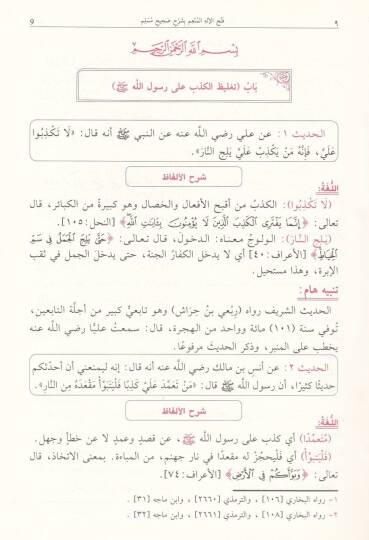 ٩ فتح الإله المنعم بشرح صحيح مسلم 9
بسم الله الرحمن الرحيم
بَابُ (تغليظ الكذب على رسول الله ﷺ)
الحديث ١: عن علي رضي الله عنه عن النبي ﷺ أنه قال: «لَا تَكْذِبُوا
عَلَيَّ، فَإِنَّهُ مَنْ يَكْذِبْ عَلَيَّ يَلِجِ النَّارَ».
شرح الألفاظ
اللُّغَةُ:
(لَا تَكْذِبُوا): الكذبُ من أقبح الأفعال والخصال وهو كبيرةٌ من الكبائر، قال
تعالى: ﴿إِنَّمَا يَفْتَرِى الْكَذِبَ الَّذِينَ لَا يُؤْمِنُونَ بِـَٔايَـٰتِ اللَّهِ﴾ [النحل: ١٠٥].
(يَلِجِ النَّارَ): الولوجُ معناه: الدخولُ، قال تعالى: ﴿حَتَّىٰ يَلِجَ الْجَمَلُ فِى سَمِّ
الْخِيَاطِ﴾ [الأعراف: ٤٠] أي لا يدخل الكفارُ الجنة، حتى يدخلَ الجمل في ثقب
الإبرة، وهذا مستحيل.
تنبيه هام:
الحديث الشريف رواه (رِبْعي بنُ حِرَاش) وهو تابعيٌّ كبير من أجلَّة التابعين،
تُوفي سنة (١٠١) مائة وواحد من الهجرة، قال: سمعتُ عليًّا رضي الله عنه
يخطب على المنبر، وذكر الحديث مرفوعًا.
الحديث ٢: عن أنس بن مالك رضي الله عنه أنه قال: إنه ليمنعني أن أحدثكم
حديثًا كثيرًا، أن رسول الله ﷺ قال: «مَنْ تَعَمَّدَ عَلَيَّ كَذِبًا فَلْيَتَبَوَّأْ مَقْعَدَهُ مِنَ النَّارِ».
شرح الألفاظ
اللُّغَةُ:
(مُتَعَمِّدًا) أي كذب على رسول الله ﷺ، عن قصدٍ وعمدٍ لا عن خطأٍ وجهل.
(فَلْيَتَبَوَّأْ) أي فَلْيحجُزْ له مقعدًا في نار جهنم، من المباءة. بمعنى الاتخاذ، قال
تعالى: ﴿وَبَوَّأَكُمْ فِى الْأَرْضِ﴾ [الأعراف: ٧٤].
١- رواه البخاري [١٠٦] ، والترمذي [٢٦٦٠] ، وابن ماجه [٣١] .
٢- رواه البخاري [١٠٨] ، والترمذي [٢٦٦١] ، وابن ماجه [٣٢] .